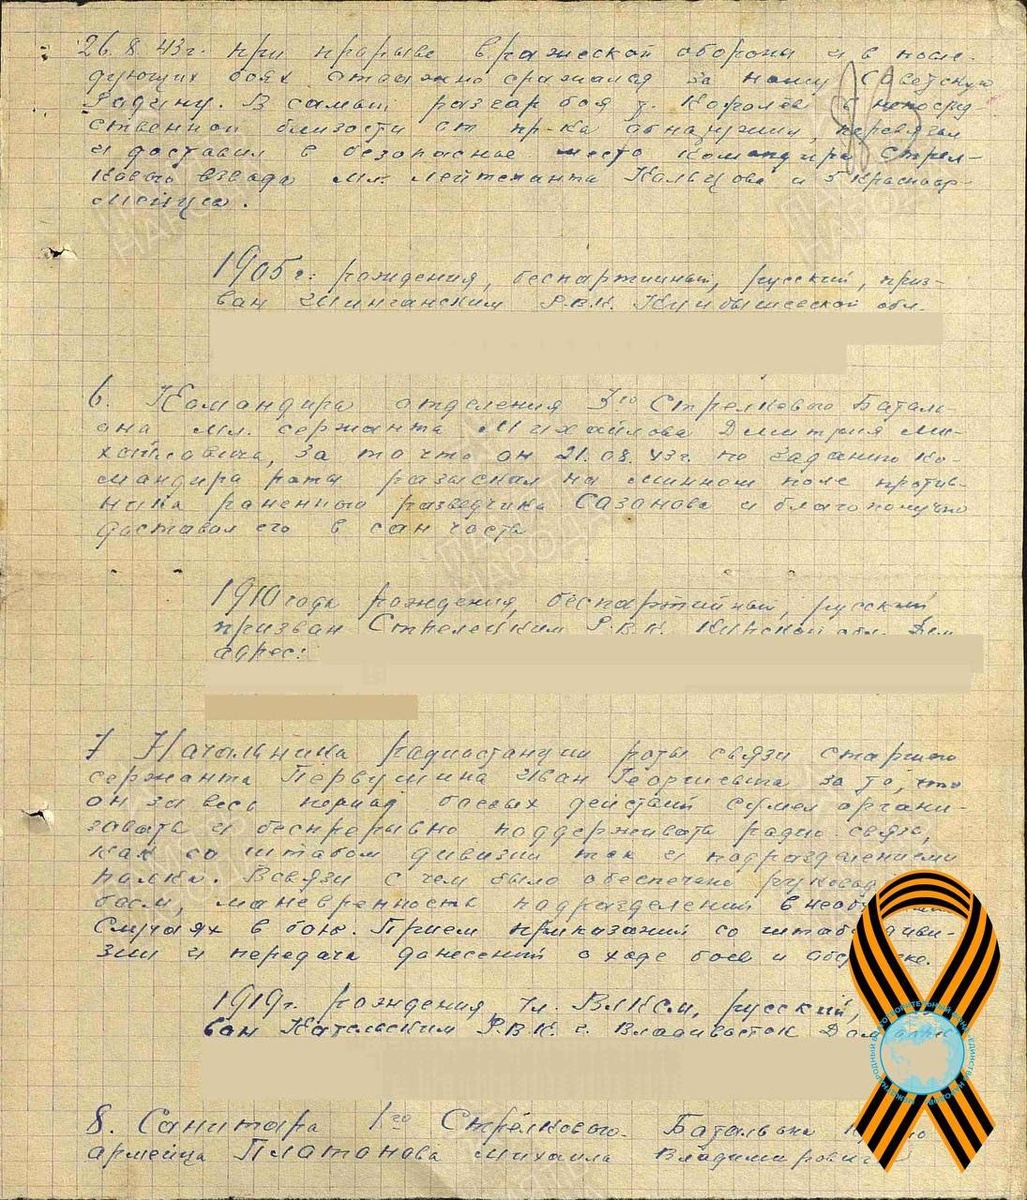 26.8.43г. при прорыве вражеской обороны и в после-
дующих боях отважно сражался за нашу Советскую
Радину. В самый разгар боя т. Королев в непосред
ственной близости от пр-ка обнаружил, перевязал
и доставил в безопасное место командира Стрел-
кового взвода мл. лейтенанта Кольцова и 5 красноар-
мейцев.
1905г. рождения, беспартийный, русский, приз-
ван РВК. Куйбышевской обл.
6. Командира отделения 3го Стрелкового Баталь-
она мл. сержанта Михайлова Дмитрия Ми-
хайловича, за то что он 21.08.43г. по заданию ко-
мандира роты разыскал на минном поле против-
ника раненного разведчика Сазанова и благополучно
доставил его в сан часть
1910 года рождения, беспартийный, русский
призван Стрелецким Р.В.К. Курской обл. Дом.
адрес:
7 Начальника радиостанции роты связи старшего
сержанта Первушина Иван Георгиевича за то, что
он за весь период боевых действий сумел органи-
завать и беспрерывно поддерживать радио связь,
как со штабом дивизии так и подразделениями
полка. Всвязи с чем было обеспечено
боем, маневренность подразделений в
Случаях в бою. Прием приказаний со диви-
зии и передача донесений о ходе боев и
1919г. рождения, чл. ВЛКСМ, русский,
ван РВК. г. Владивосток
8. Санитара 1го Стрелкового Батальона
армейца Платонова Михаила Владимировича